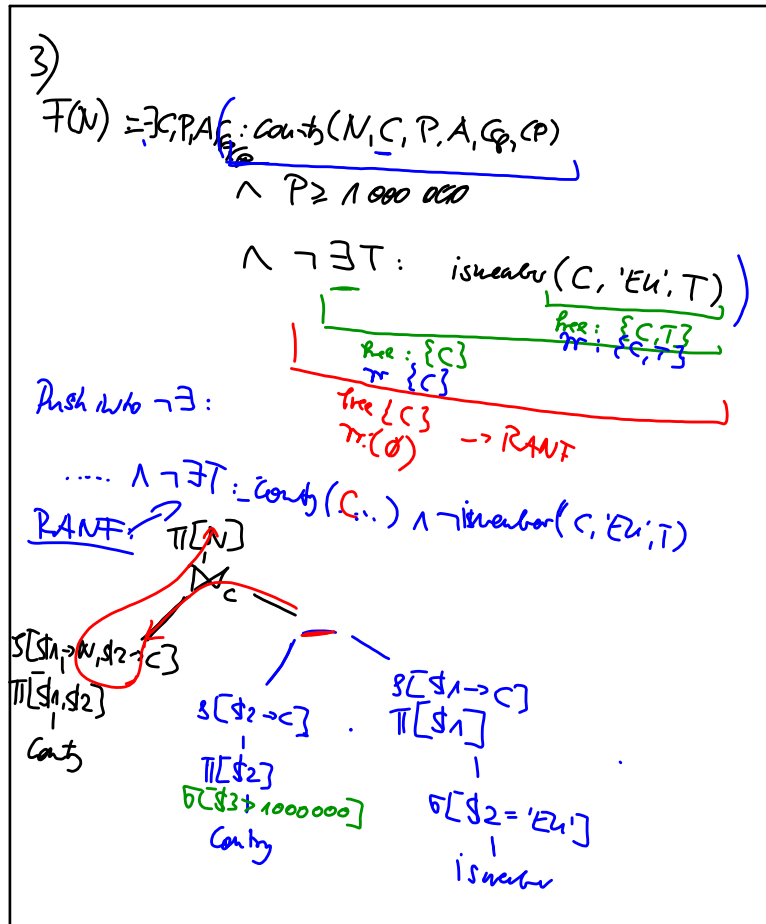 3)
F(N) = ∃C,P,A,Cp,CP(: County(N, C, P, A, Cp, CP)
∧ P ≥ 1 000 000
∧ ¬∃T: ismember(C, 'EU', T))
free: {C,T}
rr: {C,T}
free: {C}
rr {C}
free {C}
rr: (∅) → RANF
Push into ¬∃:
..... ∧ ¬∃T: County(C...) ∧ ¬ismember(C, 'EU', T)
RANF:
π[N]
⋈ C
−
ρ[$1→N, $2→C]
π[$1,$2]
County
ρ[$2→C]
π[$2]
σ[$3>1000000]
Contry
ρ[$1→C]
π[$1]
σ[$2='EU']
ismember